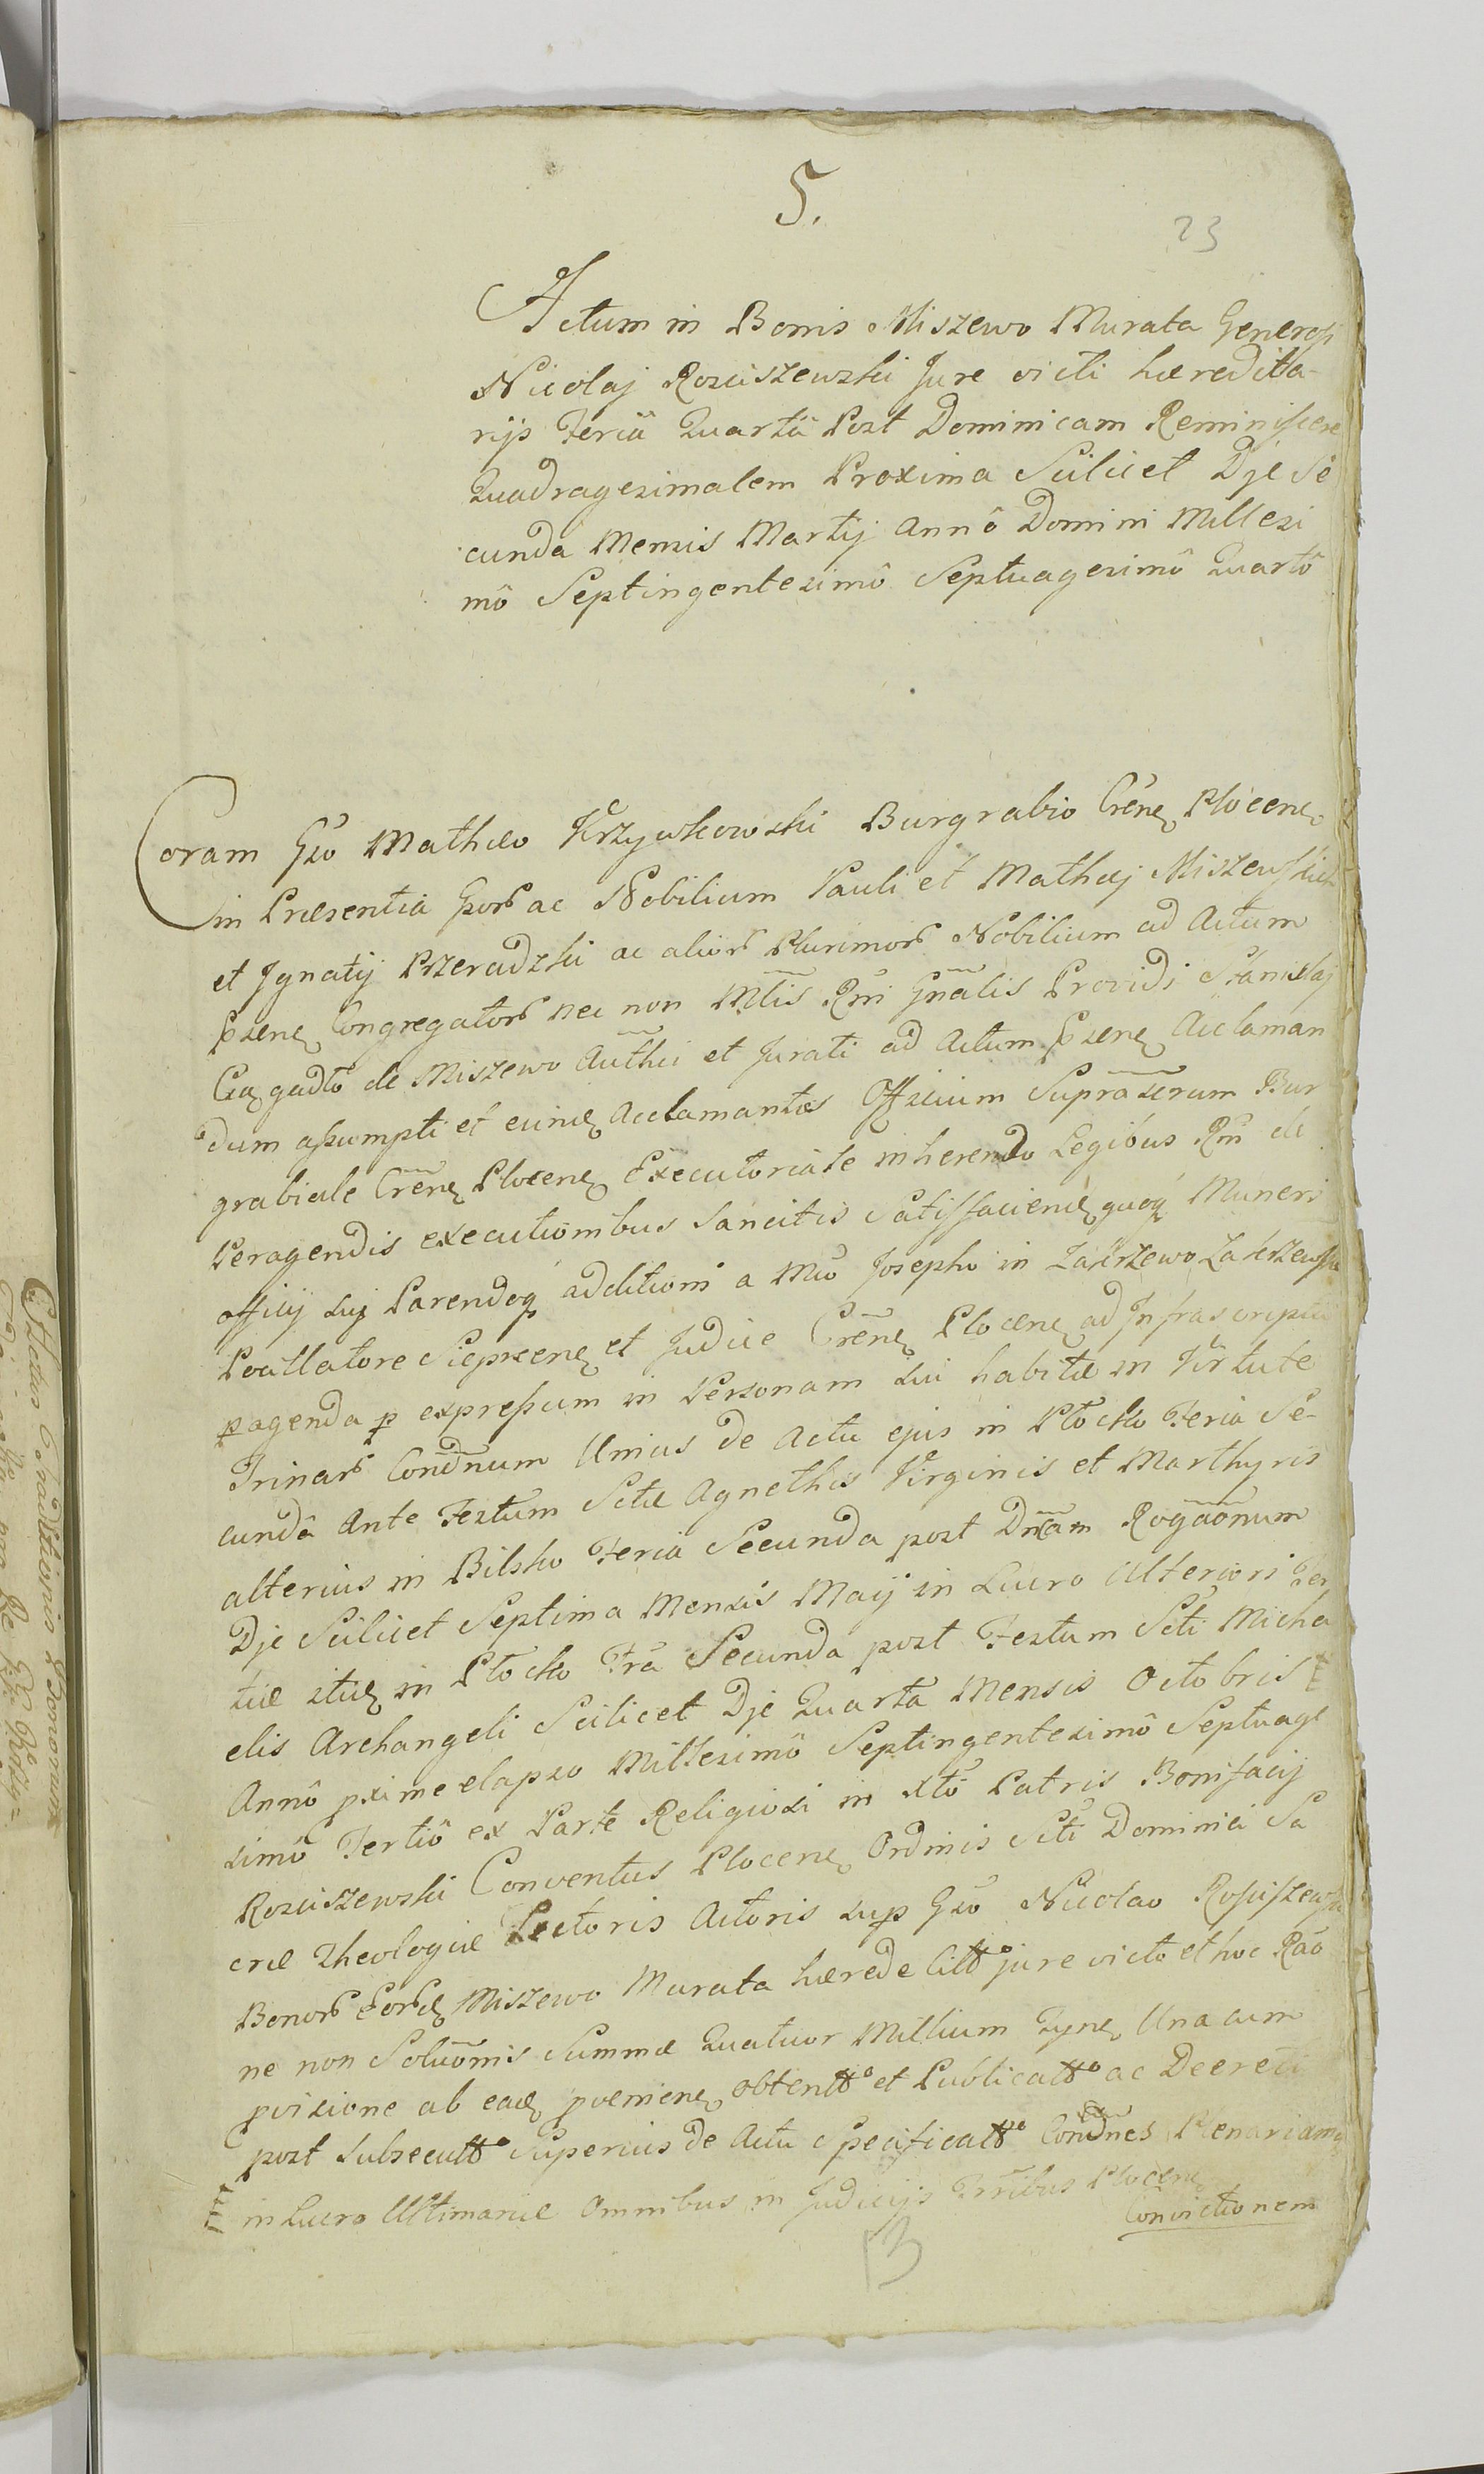 5.
23
Actum in Bonis Miszewo Murata Generosi
Nicolaj Rosciszewski Jure victi hæredita-
rijs Feriâ Quartâ Post Dominicam Reminiscere
Quadragesimalem Proxima Scilicet Dje Se
cunda Mensis Martij Annô Domini Millesi
mô Septingentesimô Septuagesimô Quartô
Coram Gso Mathæo Krzywkowski Burgrabio Crēne Plocene
in Præsentia Gsor ac Nobilium Pauli et Mathæj Miszewskich
et Jgnatij Przeradzki ac alior Plurimor Nobilium ad Actum
Psene Congregator nec non Mtlis Rni Gnalis Providi Stanislaj
de Miszewo Authci et Jurati ad Actum Psene Acclaman
dum assumpti et Acclamantis Officium Supra Burgrabiale
grabiale Crēne Plocene Executoriale inherendo Legibus Rni de
Peragendis executionibus Sancitis Satisfaciend quoq Muneri
officij sui Parendoq additioni a Mco Josepho in Zakrzewo Zakrzewski
Pocillatore Siepscene et Judice Crēne Plocene ad Jnfrascripta
pagenda p expressum in Personam sui habitæ in Virtute
Trinar Condnum Unius de Actu ejus in Płocko Feria Se-
cundâ Ante Festum Sctæ Agnethis Virginis et Marthyris
alterius in Bilsko Feria Secunda post Dncam Rogãonum
Dje Scilicet Septima Mensis Maij in Lucro Ulteriori Ter
tiæ in Płocko Fra Secunda post Festum Scti Micha
elis Archangeli Scilicet Dje Quarta Mensis Octobris
Annô pxime elapso Millesimô Septingentesimô Septuage
simô Tertiô ex Parte Religiosi in Xto Patris Bonifacij
Rosciszewski Conventus Plocene Ordinis Scti Dominici Sa
cræ Theologiæ Lectoris Actoris sup Gso Nicolao Rosciszewski
Bonor Eord Miszewo Murata hærede Citto jure victo et hoc Rao
ne non Solutonis Summæ Quatuor Millium Una cum
pvisione ab ead pveniene obtentto et Publicatto ac Decreti
post subsecutto Superius de Actu Specificatto Condnes Plenariamq
in Lucro Ultimariæ Omnibus in Judicijs Trribus Plocene
Convictionem
13